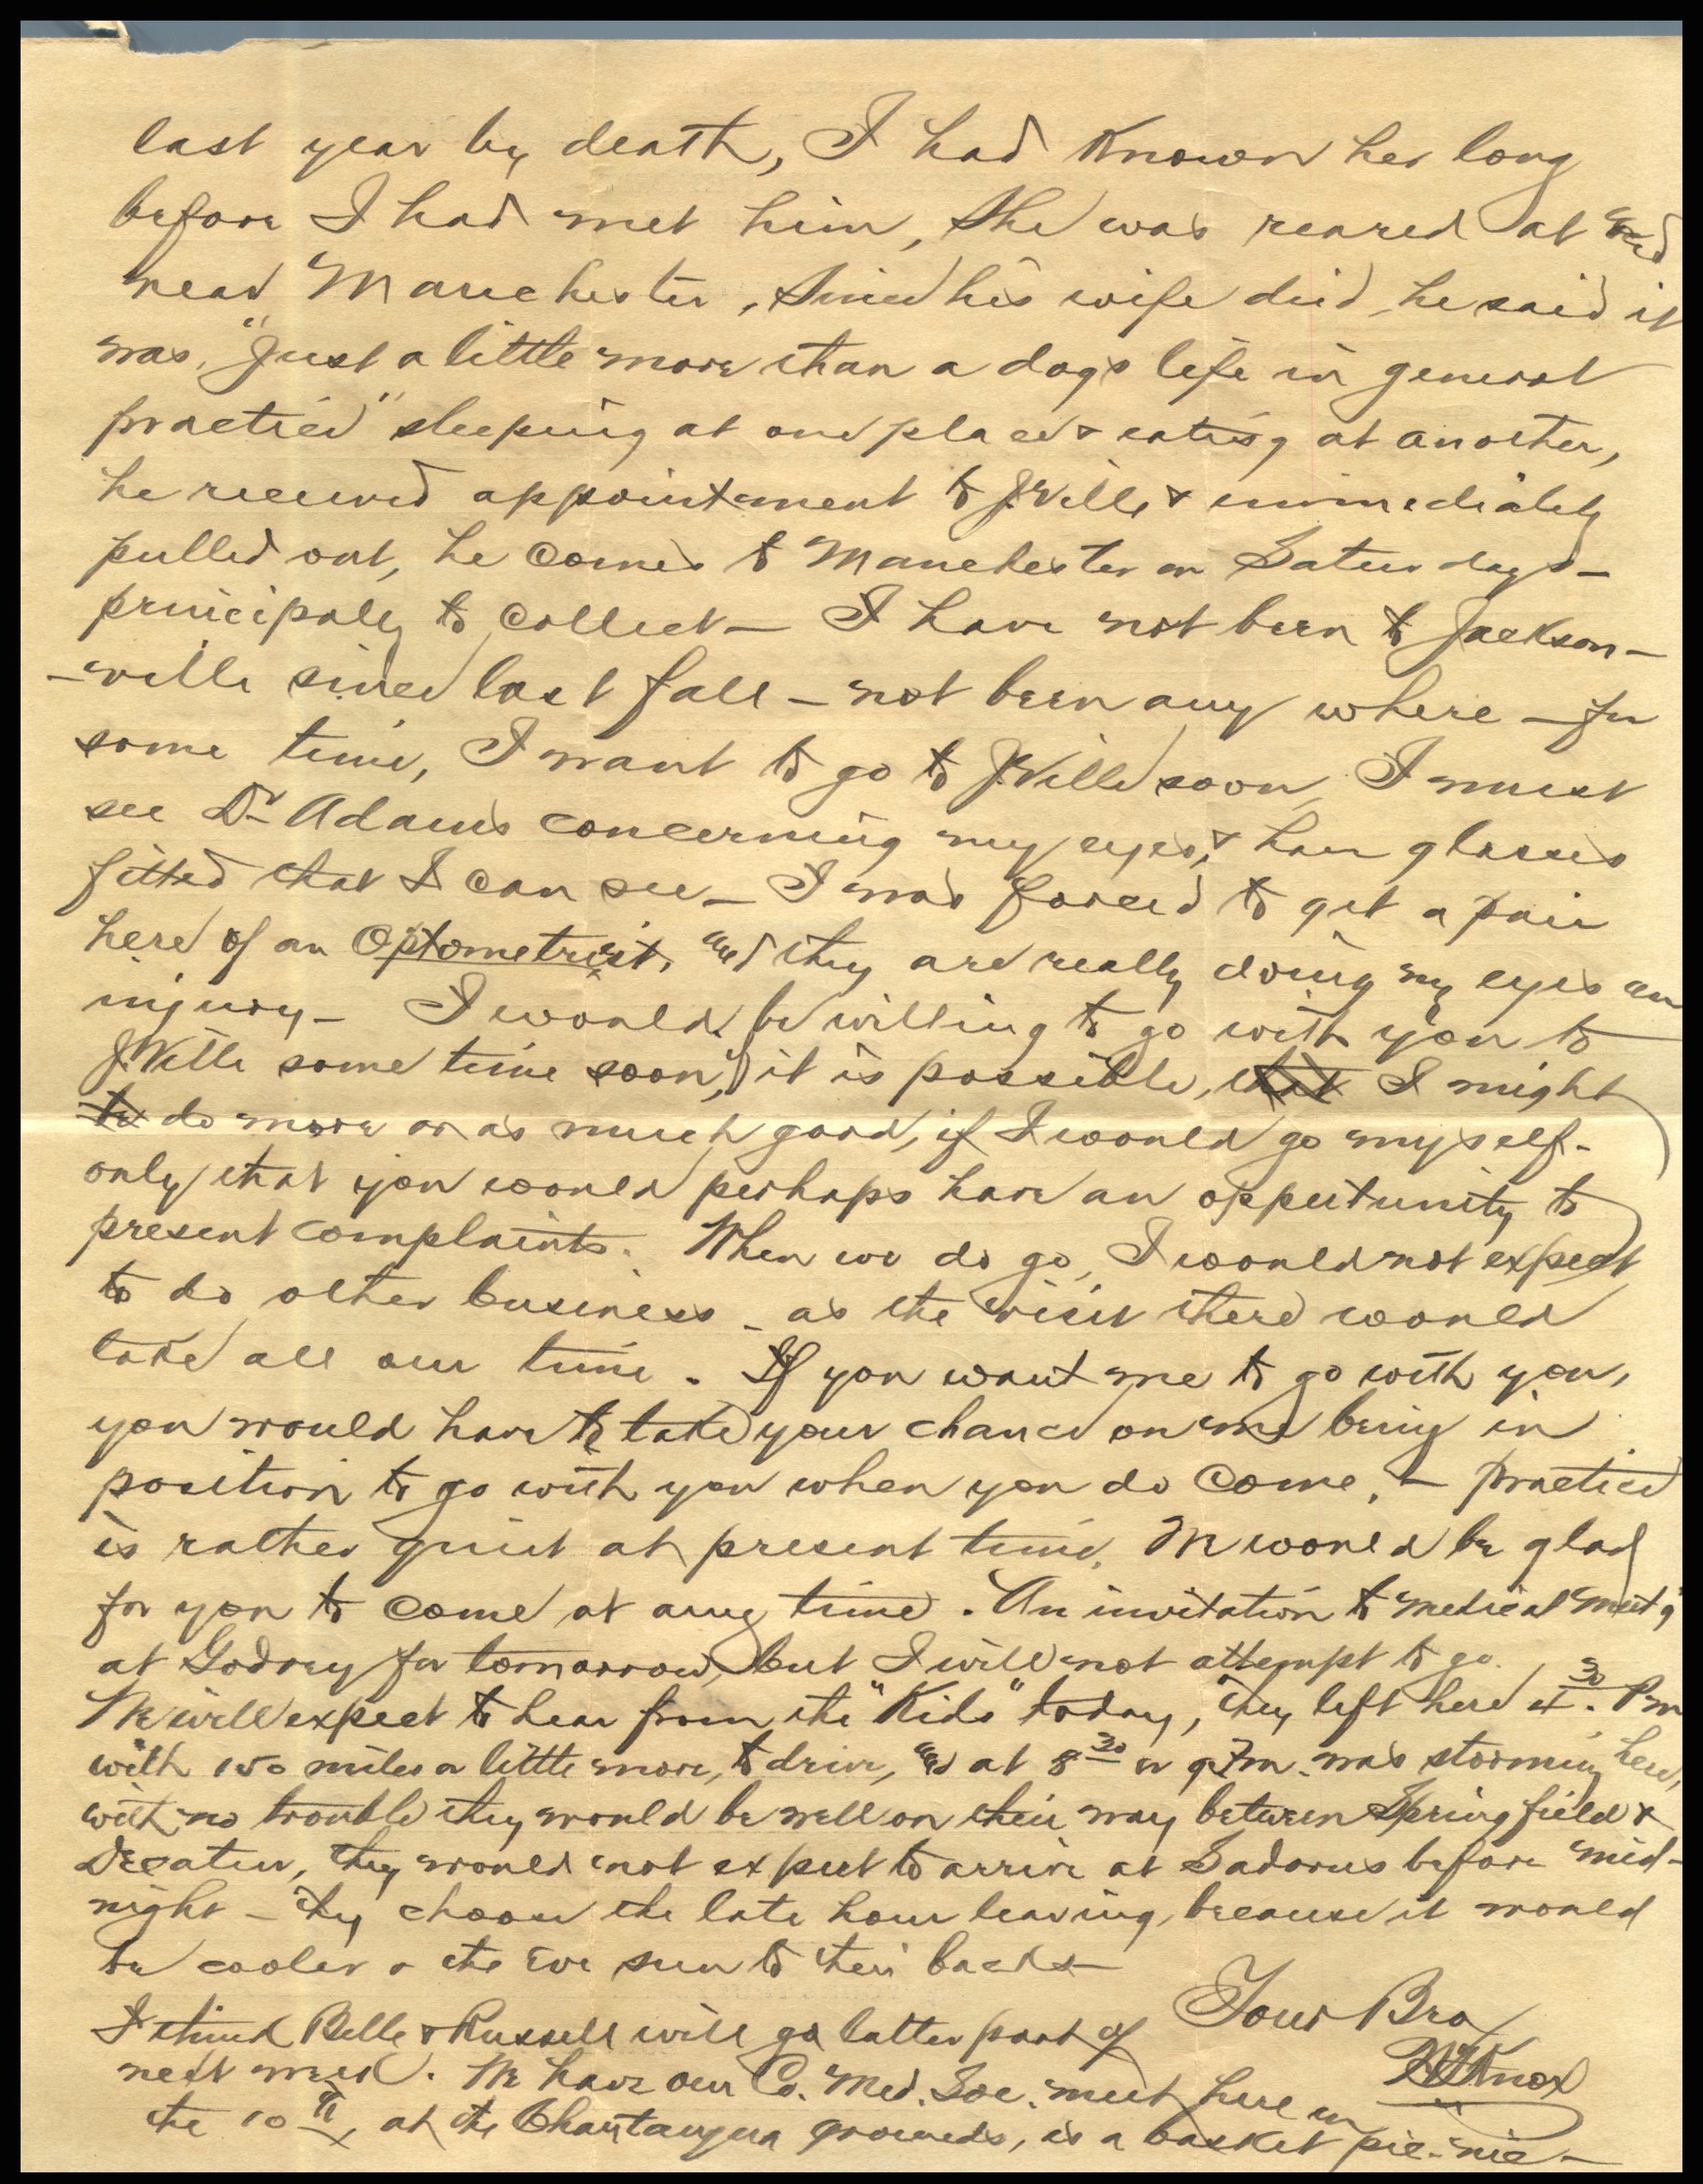 last year by death, I had Known her long
before I had met him, She was reared at and
near Manchester, Since his wife died, he said it
was, "Just a little more than a dogs life in general
practice" sleeping at one place & eating at another,
he received appointment to J.Ville & immediately
pulled out, he comes to Manchester on Saturdays –
principaly to collect – I have not been to Jackson–
–ville since last fall – not been any where – for
some time, I want to go to J.Ville soon, I must
see Dr Adams concerning my eyes, & have glasses
fitted that I can see – I was forced to get a pair
here of an Optometrist, and they are really doing my eyes an
injury – I would be willing to go with you to
J.Ville some time soon, it is possible, that I might
to do more or as much good, if I would go myself –
only that you would perhaps have an oppertunity to
present complaints. When we do go, I would not expect
to do other business – as the visit there would
take all our time. If you want me to go with you,
you would have to take your chance on me being in
position to go with you when you do come, – practice
is rather quiet at present time, We would be glad
for you to come at any time. An invitation to medical meet'g
at Godrey for tomorrow, but I will not attempt to go.
We will expect to hear from the "Kids" today, they left here 4.30 Pm
with 150 miles a little more, to drive, and at 8 30 or 9 Pm. was storming here,
with no trouble they would be well on their way between Springfield &
Decatur, they would not expect to arrive at Sadorus before mid–
night – they choose the late hour leaving, because it would
be cooler & the Eve sun to their backs –
Your Bro
I think Belle & Russell will go latter part of
next week. We have our Co. Med. Soc. meet here on
the 10th, at the Chautauqua grounds, is a basket pic-nic –
Knox